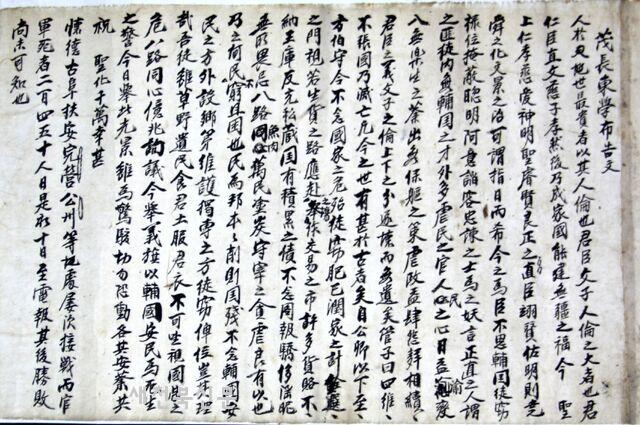 茂長東學布告文
人於天地世最貴者以其人倫也君臣父子人倫之大者也君
仁臣直父慈子孝然後乃成家國能建無疆之福今 聖
上仁孝慈愛神明聖睿賢良正之直臣翊贊佐明則堯
舜之化文景之治可謂指日而希今之為臣不思輔國徒窃
祿位掩蔽聰明阿意諂容忠諫之士為之妖言正直之人謂
之匪徒內無輔國之才外多虐民之官人民之心日益渝變
入無樂生之業出無保軀之策虐政益肆怨聲相續
君臣之義父子之倫上下之分逆壞而無遺矣管子曰四維
不張國乃滅亡危今之世有甚於古者矣自公卿以下至
方伯守令不念國家之危殆徒窃肥己潤家之計銓選
之門視若生貨之路應赴試場交易之市許多貨賂不
納王庫反充私藏國有積累之債不念圖報驕侈淫昵
無所畏忌八路魚肉萬民塗炭守宰之貪虐良有以也
乃之何民窮且困也民為邦本本削則國殘不念輔國安
民之方外設鄉第維謀獨專之方徒窃俸位豈其理
哉吾徒雖草野遺民食君土服君衣不可坐祖國之
危八路同心億兆詢議今舉義旗以輔國安民為死生
之誓今日舉此光景雖為驚駭切勿恐動各其安業共
祝 聖化千萬幸甚
懷德古阜扶安完營公州等地處屢次接戰而官
軍死者二百四五十人日是初十日至電報其後勝敗
尚未可知也